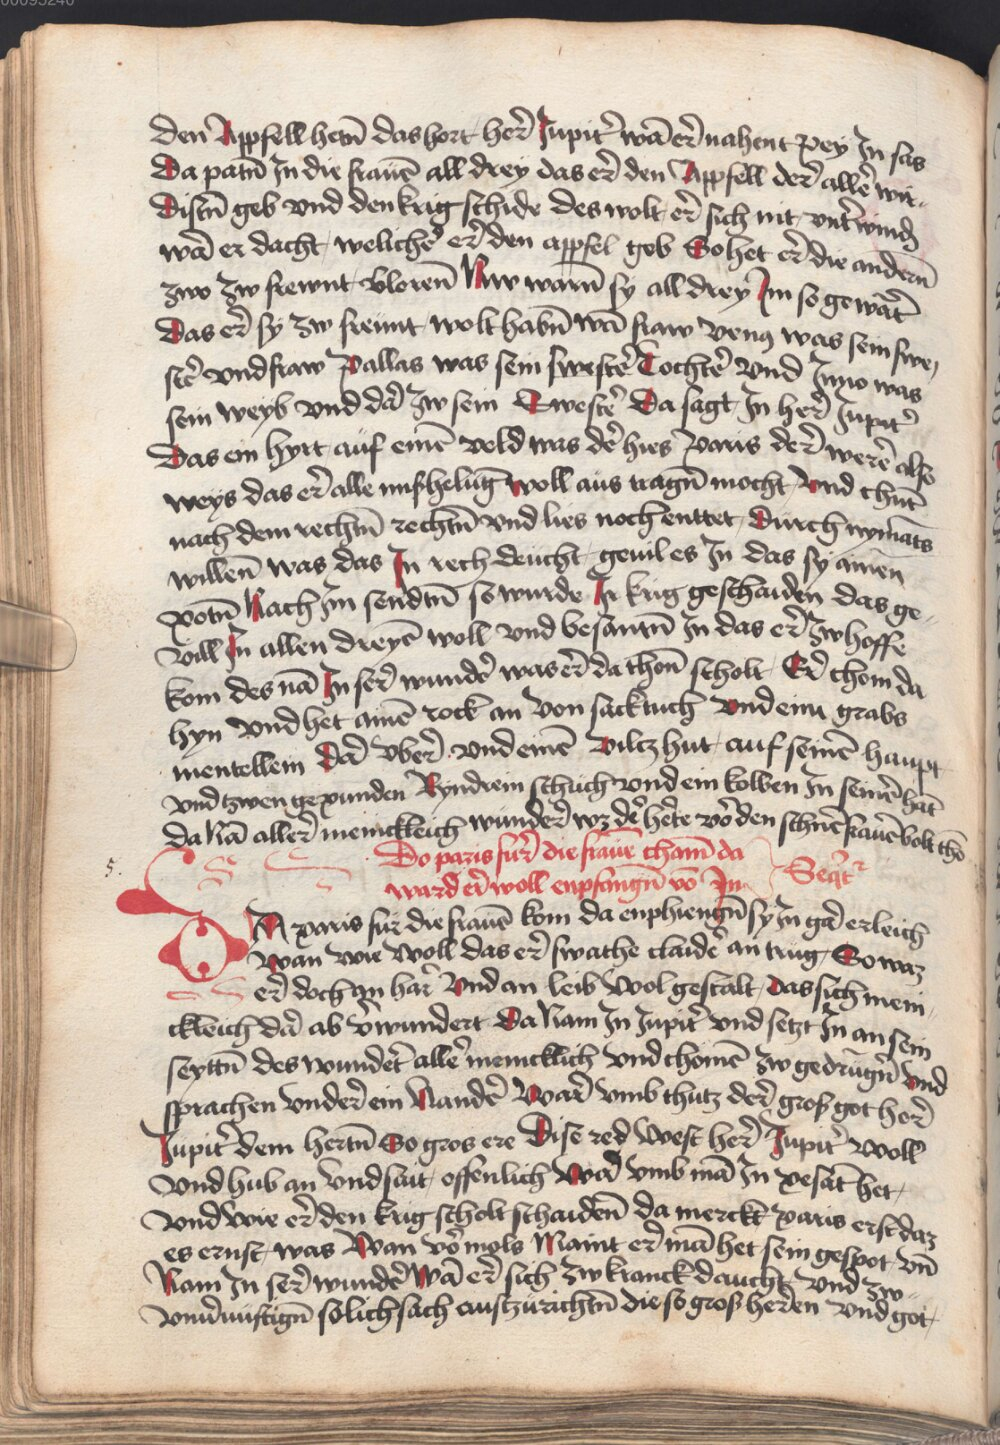 00095240
den Appfell hetn̄ das hort her̄ Jupit̄ wā er̄ nahent pey In sas
Da patn̄ In die frauē all drey das er̄ den Appfell der̄ allē wir
distn̄ geb vnd den krig schide des wolt er̄ sich nit vnt̄ wind̄
wā er dacht welichē er̄ den appfel geb So het er̄ die andern̄
zwo zw frewnt vloren̄ Nw warn̄ sy all drey Im so gewāt̄
Das er̄ sy zw freunt wolt habn̄ wā fraw venꝰ was sein swe
stē vnd fraw Pallas was sein swestē Tochtē vnd Juno was
sein weyb vnd dā zw sein Swestē Da sagt In her̄ Jupit̄
Das ein hyrt auf einē veld was dē hies Paris der̄ werē also
weys das er̄ alle mishelūg woll aus tragn̄ mocht vnd thut̄
nach dem rechtn̄ rechtn̄ vnd lies noch enttet durch nymāts
willen̄ was das In rech deucht geuil es In das sy ainen
potn̄ Nach Im sendtn̄ so wurde Ir krig geschaiden das ge
vill In allen dreyē woll vnd besantn̄ In das er̄ zw hoffe
kom des nā In ser̄ wundē was er̄ da thon̄ scholt Er̄ chom da
hyn vnd het ainē rock an von sacktuch vnd ein grabs
mentellein Dā vber̄ vnd einē vilczhut auf seinē haupt
vnd zwen gepunden Ryndrein schuch vnd ein kolben In seinē hāt
da Nā aller̄ menickleich wunder̄ wz dē hertē vō den schnē frauē volt thō
5.
Do paris fur̄ die frauē cham̄ da
ward er̄ woll enpfangn̄ vō In
DA paris fur die frauē kom da enphiengn̄ sy In gā erleich
wan wie woll das er̄ swache claidē an trug So waz
er̄ doch an har̄ vnd an leib wol gestalt das sich meni
ckleich dā ab v̄wundert Da Nam In Jupit̄ vnd setzt In an sein
seyttn̄ des wundēt allē menicklich vnd chomē zw gedrūgn̄ vnd
sprachen vnder̄ ein Nandē War̄ vmb thutz der̄ gros got her̄
Jupit̄ dem hertn̄ So gros ere Dise red West her̄ Jupit̄ woll
vnd hub an vnd sait offenlich wā vmb mā In pesāt het
vnd wie er̄ den krig scholt schaiden̄ da merckt paris erst daz
es ernst was Wan vō mols Maint er̄ mā het sein gespot vn̄
Nam In ser̄ wundē Wā er̄ sich zw kranck daucht vnd zw
vnuernuftign̄ solich sach auszurichtn̄ die so gros her̄en vnd got